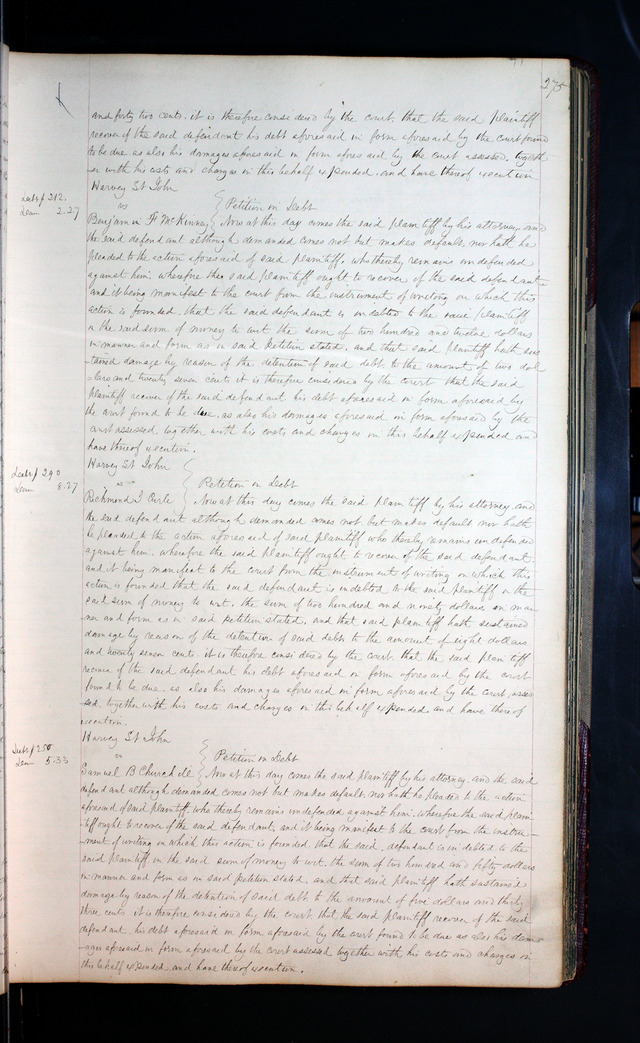 275
and forty two cents. it is therefore considered by the court, that the said plaintiff
recover of the said defendant his debt aforesaid in form aforesaid by the court found
to be due as also his damages aforesaid in form aforesaid by the court assessed, togeth
er with his costs and charges in this behalf expended, and have thereof execution
Harvey St John
Debt $ 212.
vs Petition in Debt
Dam 2.27
Benjamin F McKinney Now at this day comes the said plaintiff by his attorney and
the said defendant although demanded comes not but makes default, nor hath he
pleaded to the action aforesaid of said plaintiff, who thereby remains undefended
against him. wherefore the said plaintiff ought to recover of the said defendant
and it being manifest to the court from the instrument of writing on which this
action is founded, that the said defendant is indebted to the said plaintiff
in the said sum of money to wit the sum of two hundred and twelve dollars
in manner and form as in said Petition stated, and that said plaintiff hath sus
tained damage by reason of the detention of said debt, to the amount of two dol
lars and twenty seven cents it is therefore considered by the court that the said
plaintiff recover of the said defendant his debt aforesaid in form aforesaid by
the court found to be due, as also his damages aforesaid in form aforesaid by the
court assessed, together with his costs and charges in this behalf expended and
have thereof execution.
Harvey St John
Debt $ 290
vs Petition in Debt
Dam 8.27
Richmond J Now at this day comes the said plaintiff by his attorney and
the said defendant although demanded comes not but makes default nor hath
he pleaded to the action aforesaid of said plaintiff who thereby remains undefended
against him. wherefore the said plaintiff ought to recover of the said defendant.
and it being manifest to the court from the instrument of writing on which this
action is founded that the said defendant is indebted to the said plaintiff in the
said sum of money to wit. the sum of two hundred and ninety dollars in man
ner and form as in said petition stated, and that said plaintiff hath sustained
damage by reason of the detention of said debt to the amount of eight dollars
and twenty seven cents. it is therefore considered by the court that the said plaintiff
recover of the said defendant his debt aforesaid in form aforesaid by the court
found to be due, as also his damages aforesaid in form aforesaid by the court, asses
sed, together with his costs and charges in this behalf expended and have thereof
execution.
Harvey St John
Debt $ 250
vs Petition in Debt
Dam 5.33
Samuel B Churchill Now at this day comes the said plaintiff by his attorney. and the said
defendant although demanded comes not but makes default, nor hath he pleaded to the action
aforesaid of said plaintiff, who thereby remains undefended against him. wherefore the said plain
tiff ought to recover of the said defendant, and it being manifest to the court from the instru
ment of writing on which this action is founded, that the said defendant is indebted to the
said plaintiff in the said sum of money to wit. the sum of two hundred and fifty dollars
in manner and form as in said petition stated, and that said plaintiff hath sustained
damage by reason of the detention of said debt to the amount of five dollars and thirty
three cents. it is therefore considered by the court that the said plaintiff recover of the said
defendant his debt aforesaid in form aforesaid by the court found to be due as also his dam
ages aforesaid in form aforesaid by the court assessed together with his costs and charges in
this behalf expended, and have thereof execution.